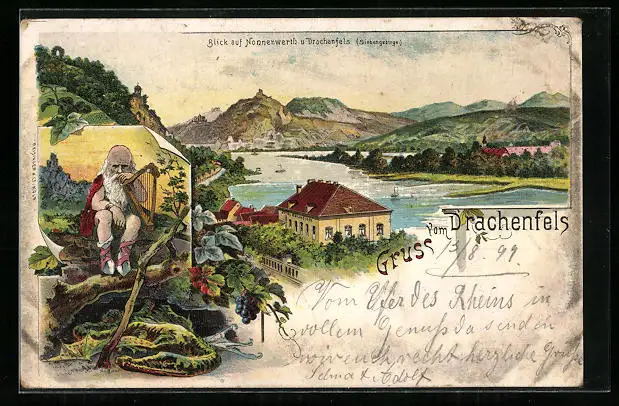 Blick auf Nonnenwerth u. Drachenfels. (Siebengebirge)
Gruss vom Drachenfels
13/8. 99
Vom Ufer des Rheins in
vollem Genuß da senden
wir euch recht herzliche Grüße
Selma & Adolf